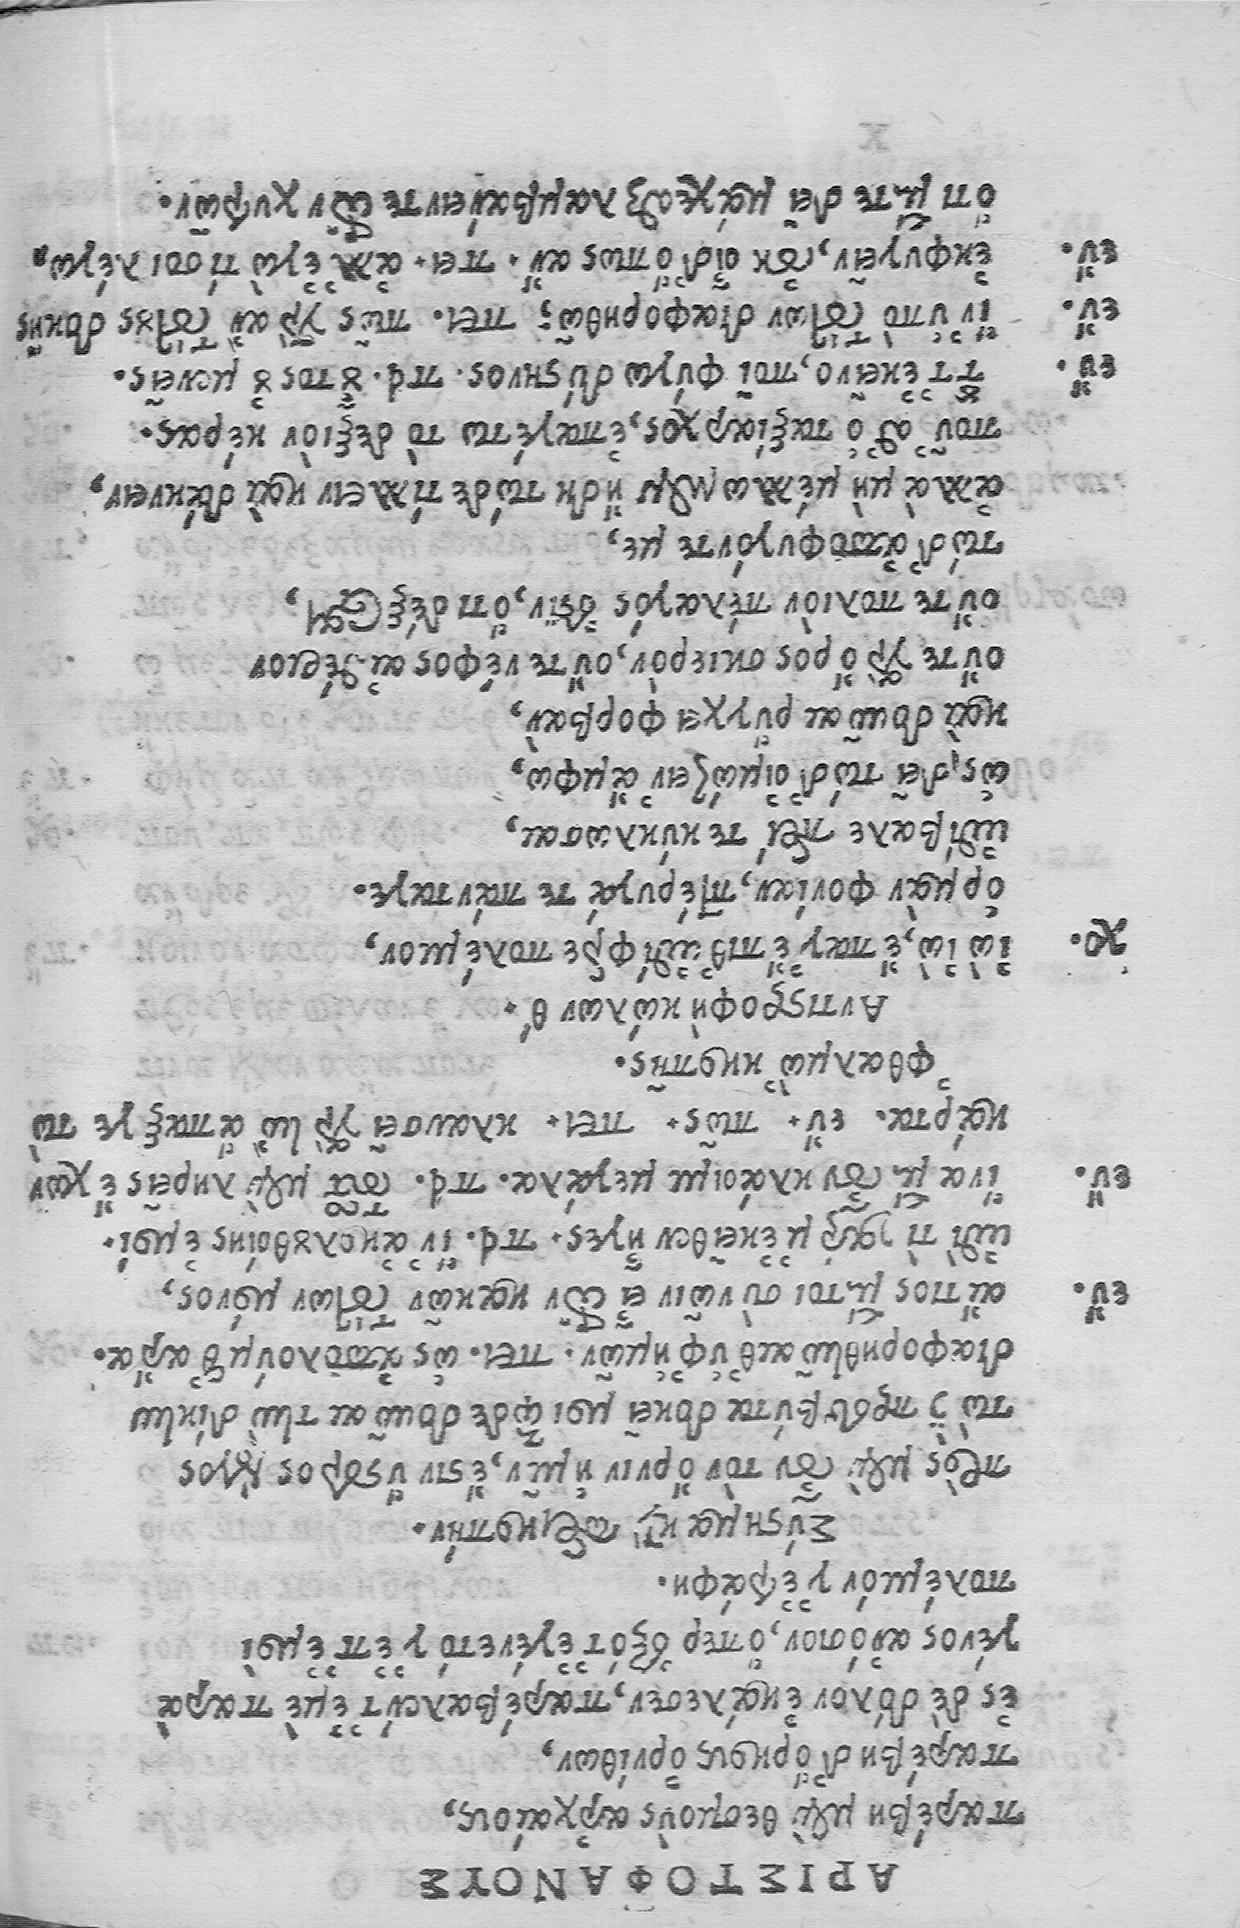 ΑΡΙΣΤΟΦΑΝΟΥΣ
παρέβη μὲν θεσμοὺς ἀρχαίους,
παρέβη δ᾽ ὅρκους ὀρνίθων,
ἐς δὲ δόλον ἐκάλεσεν, παρέβαλέν τ᾽ ἐμὲ παρὰ
γένος ἀνόσιον, ὅπερ ἐξότ᾽ ἐγένετό γ᾽ ἐπ᾽ ἐμοὶ
πολέμιόν γ᾽ ἐτράφη.
Σύστημα κτ᾽ περικοπήν.
πρὸς μὲν οὖν τὸν ὄρνιν ἡμῖν, ἔστιν ὕστερος λόγος
τὼ δὲ πρεσβύτα δοκεῖ μοι τῷδε δοῦναι τὴν δίκην
διαφορηθῆναί θ᾽ ὑφ᾽ ἡμῶν. πει. ὡς ἀπολούμεθ᾽ ἄρα.
εὐ. αἴτιος μέντοι σὺ νῶιν εἶ τῶν κακῶν τούτων μόνος,
ἐπὶ τί γάρ μ᾽ ἐκεῖθεν ἦγες. πει. ἵν᾽ ἀκολουθοίης ἐμοί.
εὐ. ἵνα μὲν οὖν κλάοιμι μεγάλα. πει. τοῦτο μὲν ληρεῖς ἔχων
κάρτα. εὐ. πῶς. πει. κλαυσεῖ γὰρ ἢν ἅπαξ γε τὼ
φθαλμὼ κκοπῇς.
Ἀντιστροφὴ κώλων θ᾽.
χο. ἰὼ ἰὼ, ἔπαγ᾽ ἔπιθ᾽ ἐπίφερε πολέμιον,
ὁρμὰν φονίαν, πτέρυγά τε πάνταγε.
ἐπίβαλε περί τε κύκλωσαι,
ὡς δεῖ τώδ᾽ οἰμώζειν ἄμφω,
καὶ δοῦναι ῥύγχει φορβάν,
οὔτε γὰρ ὄρος σκιερὸν, οὔτε νέφος αἰθέριον
οὔτε πολιὸν πέλαγος ἔστιν, ὅτι δέξεται,
τώδ᾽ ἀποφυγόντε με,
ἀλλὰ μὴ μέλλωμεν ἤδη τώδε τίλλειν καὶ δάκνειν,
ποῦ ᾽σθ᾽ ὁ ταξίαρχος, ἐπαγέτω τὸ δεξιὸν κέρας.
εὐ. τοῦτ᾽ ἐκεῖνο, ποῖ φύγω δύστηνος. πει. οὗτος οὐ μενεῖς.
εὐ. ἵν᾽ ὑπὸ τούτων διαφορηθῶ; πει. πῶς γὰρ ἂν τούτους δοκεῖς
εὐ. ἐκφυγεῖν, οὐκ οἶδ᾽ ὅπως ἄν. πει. ἀλλ᾽ ἐγὼ τόι σοι λέγω,
ὅτι μένοντε δεῖ μάχεσθαι λαμβάνειν τε τῶν χυτρῶν.